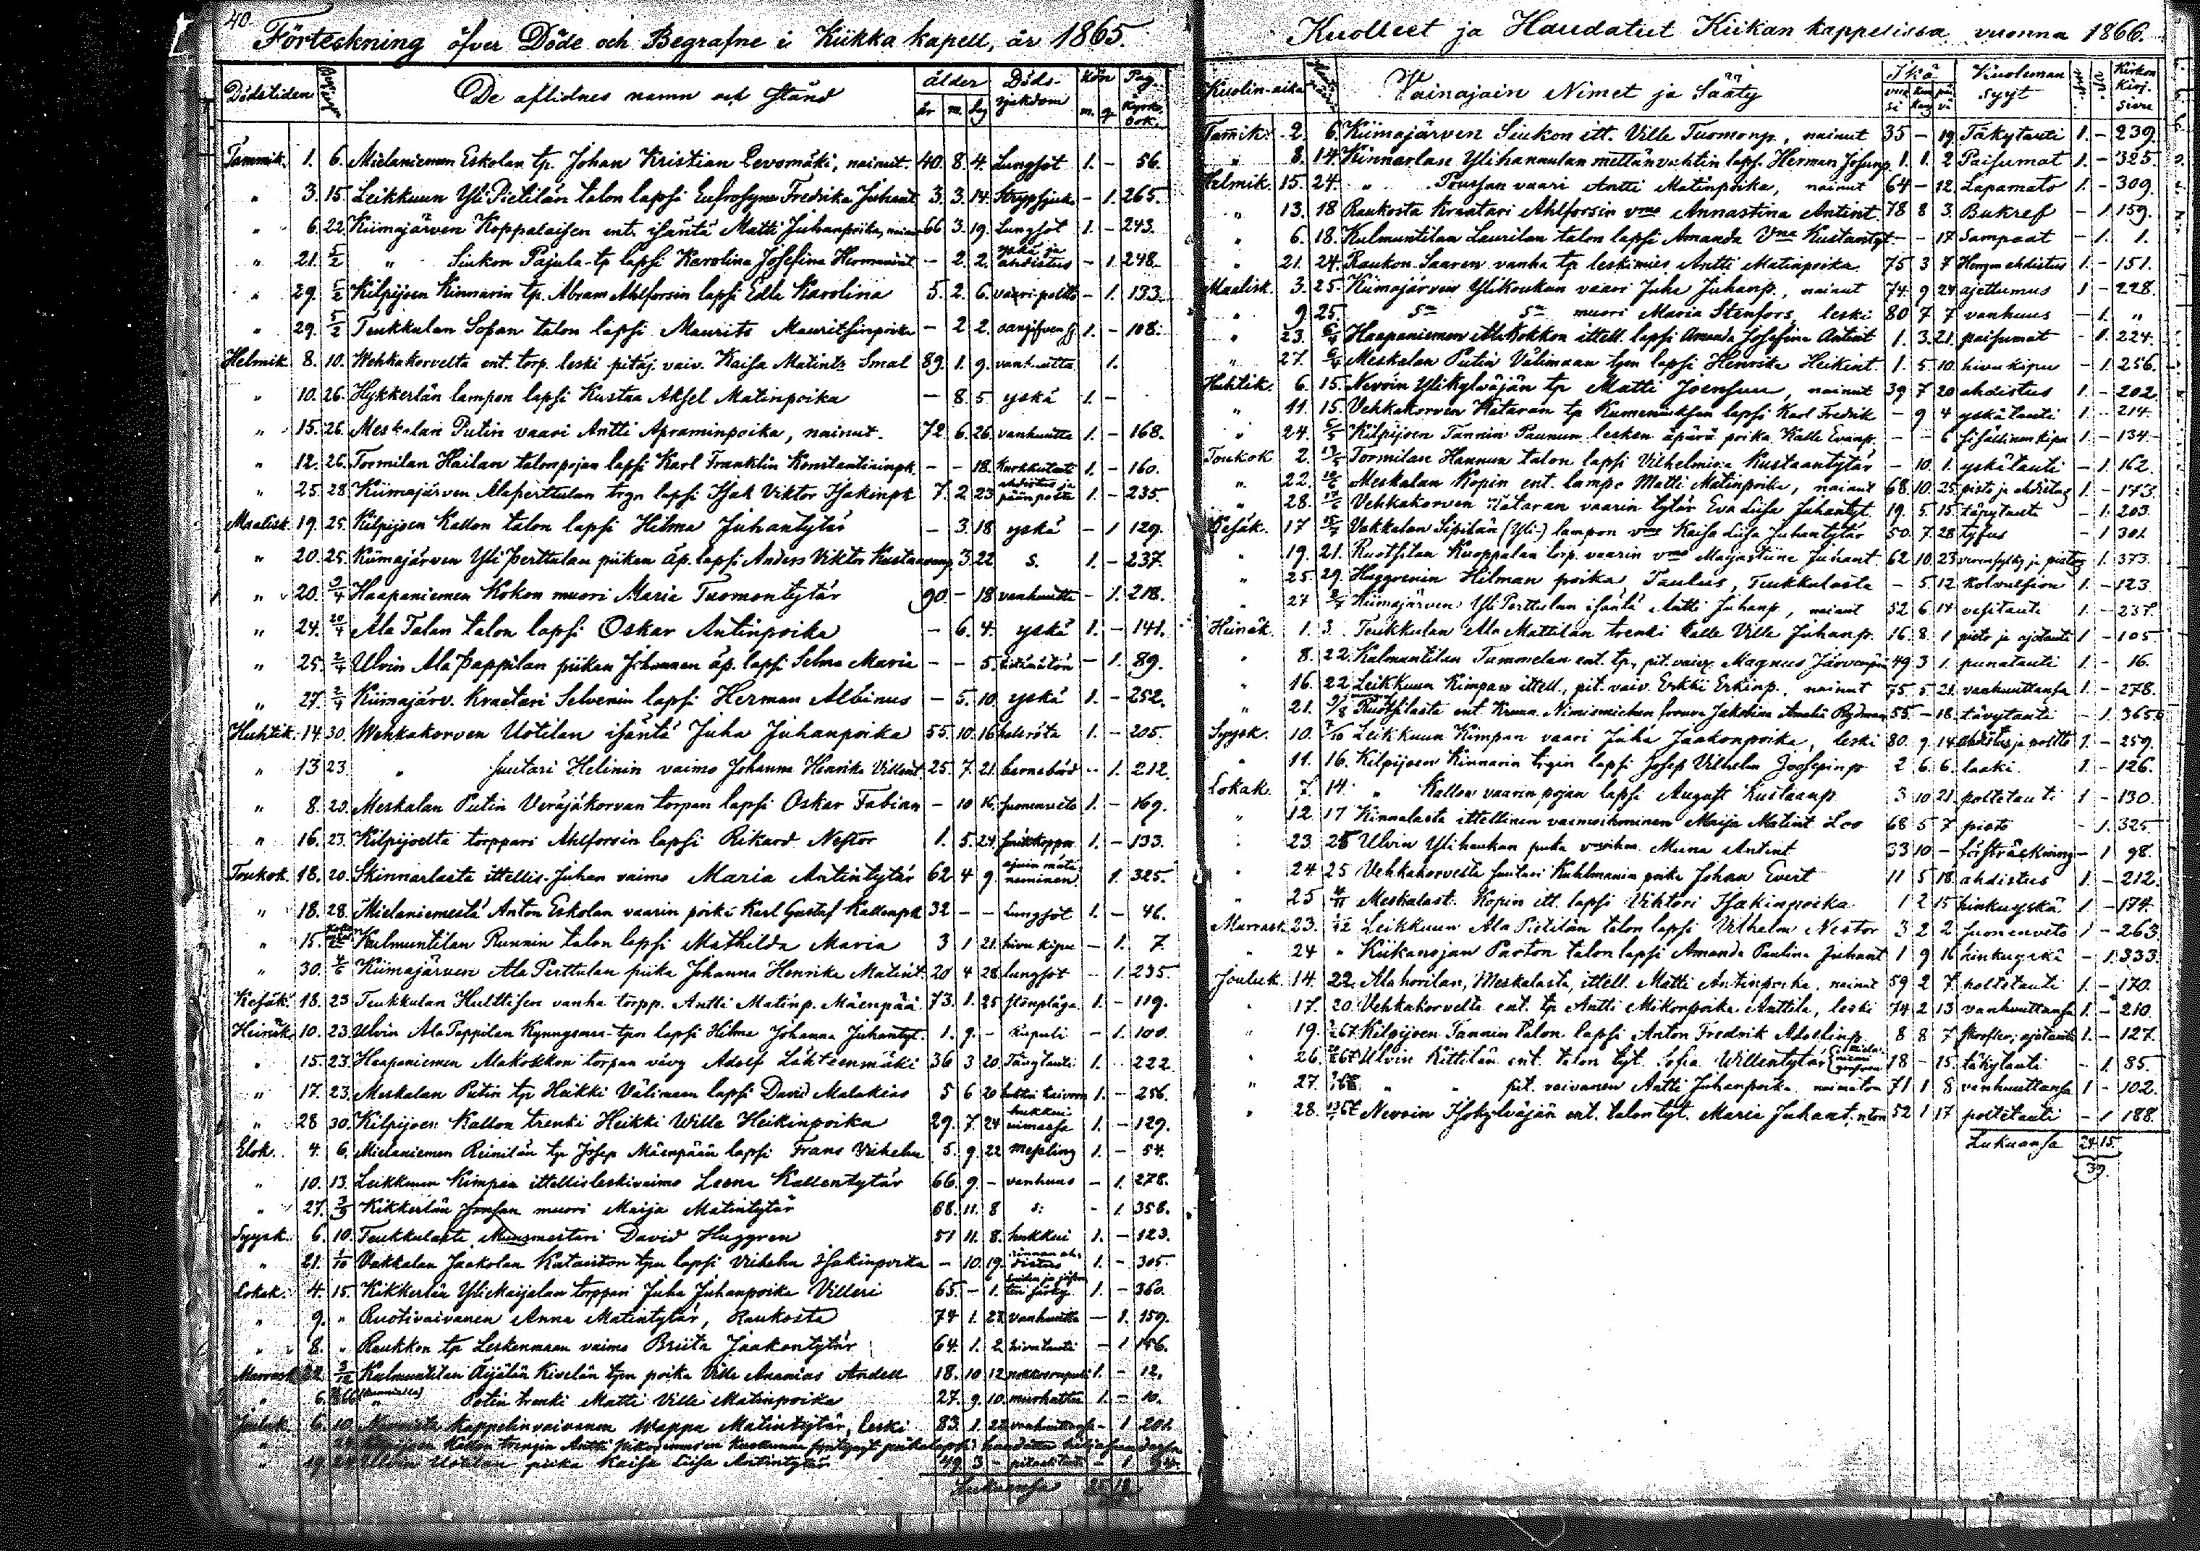 40.
Förteckning öfver Döde och Begrafne i Kiikka kapell, år 1865.
Dödstiden De aflidnes namn och Stånd ålder Döds-sjukdom Kön Pag.
år m. dag m. q. Kyrko bok.
Tammik. 1. 6. Mielaniemen Eskolan tp. Johan Kristian Levomäki, nainut. 40. 8. 4. Lungsot 1. - 56.
" 3. 15. Leikkuun Yli Pietilän talon lapsi Eufrosyna Fredrika Juhant. 3. 3. 14. Strypsjuka - 1. 265.
" 6. 22. Kiimajärven Koppalaisen ent. isäntä Matti Juhanpoika, nainut 66 3. 19. Lungsot 1. - 243.
" 21. 5/2 " Siukon Pajula tp lapsi Karolina Josefina Hermanint. - 2. 2. yskä ja ahdistus - 1. 248.
" 29. 5/2 Kilpijoen Kinnarin tp. Abram Ahlforsin lapsi Edla Karolina 5. 2. 6. poltto - 1. 133.
" 29. 5/2 Teukkulan Sofan talon lapsi Maurits Mauritsinpoika - 2 2. 1. - 108.
Helmik. 8. 10. Wehkakorvelta ent. torp. leski pitäj. vaiv. Kaisa Matint. Smal 89. 1. 9. vanhuutta 1.
" 10. 26. Hykkerlän lampon lapsi Kustaa Aksel Matinpoika - 8 5 yskä 1. -
" 15. 26. Meskalan Putin vaari Antti Apraminpoika, nainut. 72 6. 26. vanhuutta 1. - 168.
" 12. 26. Tormilan Hailan talonpojan lapsi Karl Franklin Konstantininpk - - 18. Kurkkutauti 1. - 160.
" 25. 28. Kiimajärven Alaperttulan trgn lapsi Isak Viktor Isakinpk 7. 2 23 ahdistus ja 1. - 235.
Maalisk. 19. 25. Kilpijoen Kallon talon lapsi Hilma Juhantytär - 3. 18 yskä - 1 129.
" 20. 25. Kiimajärven Yli Perttulan piikan äp. lapsi Anders Viktor Kustaanp. 3. 22 s. 1. - 237.
" 20. 2/4 Haapaniemen Kokon muori Maria Tuomontytär 90. - 18 vanhuutta - 1. 218.
" 24. 20/4 Ala Talan talon lapsi Oskar Antinpoika - 6. 4. yskä 1. - 141.
" 25. 2/4 Ulvin Ala Pappilan piikan Johannan äp. lapsi Selma Maria - - 5. - 1. 89.
" 27. 2/4 Kiimajärv. Kraatari Selvenin lapsi Herman Albinus - 5. 10. yskä 1. - 252.
Huhtik. 14. 30. Wehkakorven Uotilan isäntä Juha Juhanpoika 55. 10. 16 1. - 205.
" 13 23. " suutari Helinin vaimo Johanna Henrika Villent. 25. 7. 21. barnsbörd - 1. 212.
" 8. 23. Meskalan Putin Veräjäkorvan torpan lapsi Oskar Fabian - 10 16. suonenveto 1. - 169.
" 16. 23. Kilpijoelta torppari Ahlforsin lapsi Rikard Nestor 1. 5. 24. 1. - 133.
Toukok. 18. 20. Skinnarlasta ittellis. Juhan vaimo Maria Antintytär 62 4 9. 1. 325.
" 18. 28. Mielaniemestä Anton Eskolan vaarin poika Karl Gustaf Kallenpk 32 - - Lungsot 1. - 46.
" 15. Kulmuntilan Runnin talon lapsi Mathilda Maria 3 1 21. hivu kipu - 1. 7.
" 30. 4/6 Kiimajärven Ala Perttulan piika Johanna Henrika Matint. 20 4 28. lungsot - 1 235.
Kesäk. 18. 23 Teukkulan Hulttisen vanha torpp. Antti Matinp. Mäenpää 73. 1. 25 1. - 119.
Heinäk. 10. 23. Ulvin Ala Pappilan Kynnysmaa tpan lapsi Hilma Johanna Juhantyt. 1. 9. - Ripuli - 1. 100.
" 15. 23. Haapaniemen Alakokkon torpan vävy Adolf Lähteenmäki 36 3 20. 1. 222.
" 17. 23. Meskalan Putin tp Heikki Välimaan lapsi David Malakias 5 6 20 kaivoon 1. - 256.
" 28 30. Kilpijoen Kallon trenki Heikki Wille Heikinpoika 29. 7. 24 hukkui uimassa 1. - 129.
Elok. 4. 6. Mielaniemen Reinilän tp Josep Mäenpään lapsi Frans Vilhelm 5. 9. 22 Messling 1. - 54.
" 10. 13. Leikkuun Kimpan ittellisleskivaimo Leena Kallentytär 66. 9. - vanhuus - 1. 278.
" 27. 3/9 Kikkerlän Jonsan muori Maija Matintytär 68. 11. 8 s: - 1. 358.
Syysk. 6. 10. Teukkulasta David Huggren 51 11. 8. hukkui 1. - 123.
" 21. 1/10 Vakkalan Jaakolan Kataiston tpn lapsi Vilhelm Isakinpoika - 10. 19. rinnan ahdistus 1. - 305.
Lokak. 4. 15. Kikkerlän Ylikaijalan torppari Juha Juhanpoika Villeri 65. - 1. 1. - 360.
" 9. " Ruotivaivanen Anna Matintytär, Raukosta 74 1. 23. vanhuutta - 1. 159.
" 8. " Raukkon tp Leskenmaan vaimo Briita Jaakontytär 64. 1. 2. hivutauti - 1 156.
Marrask. 22. 3/12 Kulmuntilan Äijälän Kivelän tpn poika Ville Ananias Andell 18. 10 12 1. - 12.
" 6. " Potin trenki Matti Ville Matinpoika 27. 9. 10. murhattu 1. - 10.
Jouluk. 6. 10. kappelinvaivanen Wappu Matintytär, Leski 83. 1. 22 - 1 201.
" 24 Kilpijoen Kallon trengin Antti
" 19. Ulvin Uotilan piika Kaisa Liisa Antintytär 49. 3 - - 1
Lukuansa 25 18.
Kuolleet ja Haudatut Kiikan kappelissa vuonna 1866.
Kuolin-aika Vainajain Nimet ja Sääty Ikä Kuoleman syyt Kirkon Kirj. Sivu
Tamik. 2. 6. Kiimajärven Siukon itt. Ville Tuomonp., nainut 35 - 19 Täkytauti 1. - 239.
" 8. 14. Kinnarlan Ylihannulan mettänvahtin laps. Herman Josunp. 1. 1. 2 Paisumat 1 - 325.
Helmik. 15. 24. " Poussan vaari Antti Matinpoika, nainut 64 - 12. Lapamato 1. - 309.
" 13. 18 Raukosta Kraatari Ahlforsin vmo Annastina Antint. 78 8 3. Bukref - 1 159.
" 6. 18. Kulmuntilan Laurilan talon lapsi Amanda Vna Kustantyt. - - 17 Sampaat - 1. 1.
" 21. 24. Raukon Saaren vanha tp leskimies Antti Matinpoika. 75 3 7 Hengen ahdistus 1. - 151.
Maalisk. 3. 25. Kiimajärven Ylikoukun vaari Juha Juhanp., nainut 74. 9 24 ajettumus 1 - 228.
" 9 25. sn sn muori Maria Stenfors, leski 80 7 7 vanhuus - 1. "
" 23. Haapaniemen Alakokkon ittell. lapsi Amanda Josefina Antint 1. 3. 21. paisumat - 1. 224.
" 27. Meskalan Putin Välimaan tpn lapsi Henrika Heikint. 1. 5 10 hivu kipu - 1. 256.
Huhtik. 6. 15. Nevoin Ylikylväjän tp Matti Joensuu, nainut 39 7 20 ahdistus 1. - 202.
" 11. 15 Vehkakorven Hataran tp lapsi Karl Fredrik - 9 4 yskätauti 1. - 214.
" 24. 6/5 Kilpijoen Tannin Paunun lesken äpärä poika Kalle Evanp. - - 6 sisällinen kipu 1 - 134.
Toukok. 2. Tormilan Hannun talon lapsi Vilhelmina Kustaantytär - 10. 1. yskätauti - 1 162.
" 22. Meskalan Kopin ent. lampo Matti Matinpoika, nainut 68 10. 25 pisto ja ahdistus 1 - 173.
" 28. Vehkakorven Hataran vaarin tytär Eva Liisa Juhantyt. 19. 5 15. täpytauti - 1. 203.
Kesäk. 17 Vakkalan Sipilän (Yli-) lampon vmo Kaisa Liisa Juhantytär 50. 7. 28 tyfus - 1 301.
" 19. 21. Ruotsilan Kuoppalan torp. vaarin vmo Maijastiina Juhant 62 10. 23 1. 373.
" 25. 29. Huggrenin Hilman poika, Paulus, Teukkulasta - 5. 12 kolvulsion 1. - 123.
" 27 Kiimajärven Yli Perttulan isäntä Antti Juhanp., nainut 52 6 14 vesitauti 1. - 237.
Heinäk. 1. 3. Teukkulan Ala Mattilan trenki Kalle Ville Juhanp. 16. 8. 1 pisto ja 1. - 105
" 8. 22. Kulmuntilan Tummelan ent. tp., pit. vaiv. Magnus Järvenpää 49 3 1. punatauti 1. - 16.
" 16. 22 Leikkuun Kimpan ittell., pit. vaiv. Erkki Erkinp., nainut 75. 5 21. vanhuuttansa 1. - 278.
" 21. 5/8 Ruotsilasta ent. Kruun. Nimismiehen frouva Jakobina Amalia Rydman 55. - 18. täpytauti - 1. 365.
Syysk. 10. 7/10 Leikkuun Kimpan vaari Juha Jaakonpoika, leski 80. 9. 14 ahdistus ja poltto 1. - 259.
" 11. 16. Kilpijoen Kinnarin trgin lapsi Josep Vilhelm Joosepinp 2 6 6. laaki. 1. - 126.
Lokak. 7. 14. " Kallon vaarin pojan lapsi August Kustaanp. 3 10 21. poltetauti 1 - 130.
" 12 17 Kinnalasta ittellinen vaimoihminen Maija Matint. Loo 68 5 7 pisto - 1. 325
" 23. 25 Ulvin Ylihaukan Miina Antint 33 10 - - 1 98.
" 24 25 Vehkakorvelta suutari Kuhlmanin poika Johan Evert 11 5 18 ahdistus 1. - 212.
" 25 4/11 Meskalast. Kopin itt. lapsi Viktori Isakinpoika 1 2 15 hinkuyskä 1 - 174.
Marrask. 23. Leikkuun Ala Pietilän talon lapsi Vilhelm Nestor 3 2 2 suonenveto 1 - 263.
" 24 " Kiikanojan Parton talon lapsi Amanda Paulina Juhant. 1 9 16 hinkuyskä - 1. 333.
Jouluk. 14. 22. Alahovilan, Meskalasta, ittell. Matti Antinpoika, nainut 59 2 7. poltetauti 1. - 170.
" 17. 20. Vehkakorvelta ent. tp Antti Mikonpoika Anttila, leski 74 2 13 vanhuuttansa 1. - 210.
" 19. Kilpijoen Tannin talon lapsi Anton Fredrik Abelinp. 8 8 7 1. - 127.
" 26. Ulvin Kittilän ent. talon tyt. Sofia Willentytär 18 - 15 täkytauti - 1 85.
" 27. " " pit. vaivanen Antti Juhanpoika naimaton 71 1 8 vanhuuttansa 1 - 102.
" 28. Nevoin Isokylväjän ent. talon tyt. Maria Juhant. 52 1 17 poltetauti - 1 188.
Lukuansa 24 15.
39.